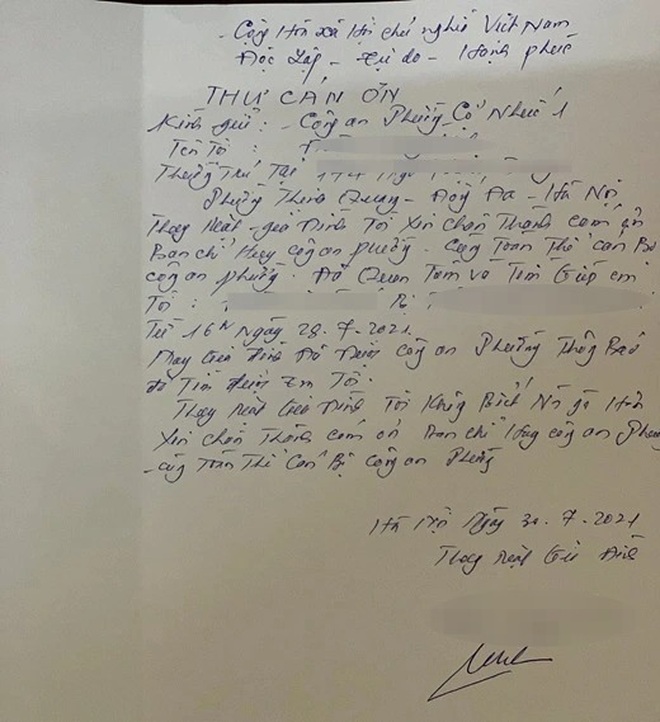 - Cộng Hòa xã Hội chủ nghĩa Việt Nam
Độc Lập - Tự do - Hạnh phúc
THƯ CẢM ƠN
Kính gửi: - Công an Phường Cổ Nhuế 1
Tên Tôi :
Thường Trú Tại
Phường Thịnh Quang - Đống Đa - Hà Nội
Thay Mặt - gia Đình Tôi Xin Chân Thành cảm ơn
Ban chỉ Huy công an phường - Cùng Toàn Thể Cán Bộ
công an phường. Đã Quan Tâm và Tìm Giúp em
Tôi : Bị :
Từ 16h Ngày 28.7.2021.
Nay Gia Đình Đã Được công an Phường Thông Báo
đã Tìm được Em Tôi.
Thay Mặt Gia Đình Tôi Không Biết Nói gì Hơn
Xin chân Thành cảm ơn Ban chỉ Huy công an Phường
- cùng Toàn Thể Cán Bộ Công an Phường
Hà Nội Ngày 30.7.2021
Thay Mặt Gia Đình